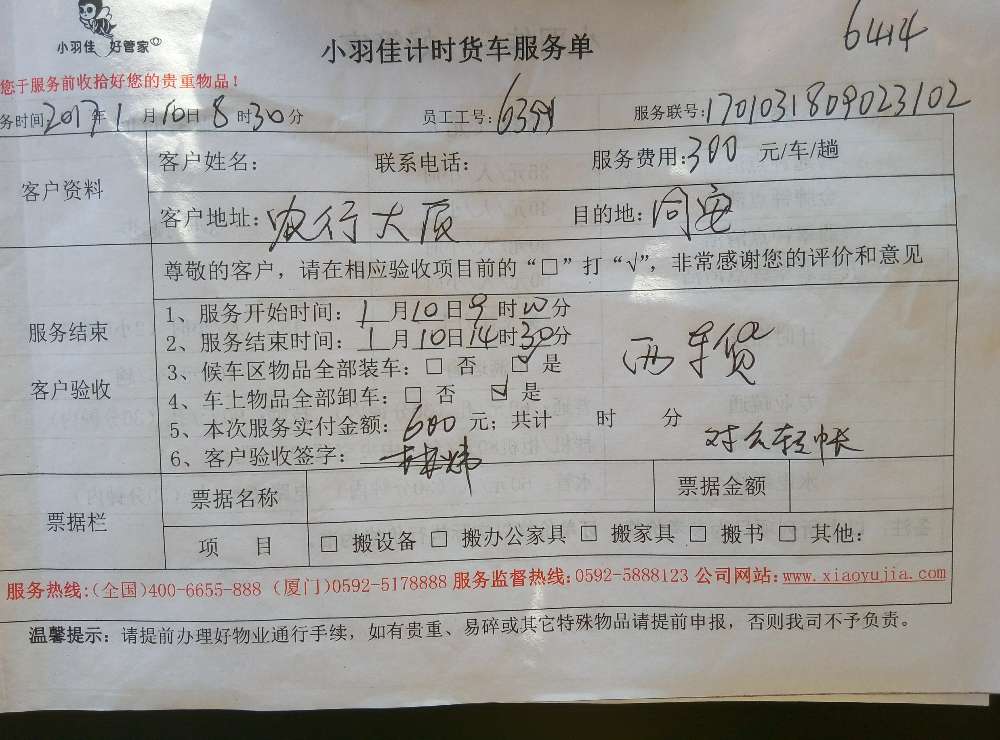 小羽佳 好管家
小羽佳计时货车服务单
6414
您于服务前收拾好您的贵重物品！
务时间2017年1月10日8时30分 员工工号：6394 服务联号：1701031809023102
客户资料
客户姓名： 联系电话： 服务费用：300 元/车/趟
客户地址：农行大厦 目的地：同安
服务结束
客户验收
尊敬的客户，请在相应验收项目前的“□”打“√”，非常感谢您的评价和意见
1、服务开始时间：1月10日9时10分
2、服务结束时间：1月10日14时30分
3、候车区物品全部装车：□ 否 ☑ 是
4、车上物品全部卸车：□ 否 ☑ 是
5、本次服务实付金额：600元；共计 时 分
6、客户验收签字：
两车货
对公转帐
票据栏
票据名称 票据金额
项 目 □ 搬设备 □ 搬办公家具 □ 搬家具 □ 搬书 □ 其他：
服务热线:(全国)400-6655-888 (厦门)0592-5178888 服务监督热线:0592-5888123 公司网站:www.xiaoyujia.com
温馨提示：请提前办理好物业通行手续，如有贵重、易碎或其它特殊物品请提前申报，否则我司不予负责。